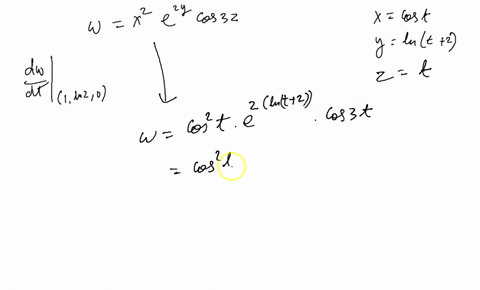 w = x² e^{2y} cos3z
x = cost
y = ln(t+2)
z = t
dw/dt |_{(1, ln2, 0)}
w = cos²t · e^{2(ln(t+2))} · cos3t
= cos²t